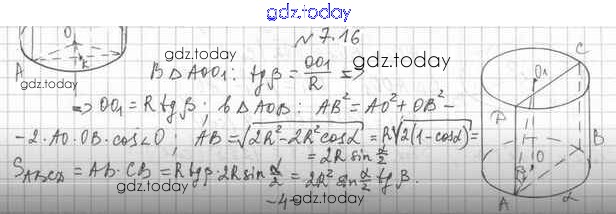 gdz.today
gdz.today
№ 7.16
gdz.today
В △AOO₁: tgβ = OO₁/R ⇒
⇒ OO₁ = R tgβ; в △AOB: AB² = AO² + OB² −
− 2·AO·OB·cos∠O; AB = √(2R² − 2R²cosα) = R√(2(1−cosα)) =
= 2R sin α/2
S_ABCD = AB·CB = R tgβ·2R sin α/2 = 2R² sin α/2 tgβ.
gdz.today
gdz.today
O
A
K
C
O₁
D
B
O
β
A
α
gdz.today
gdz.today